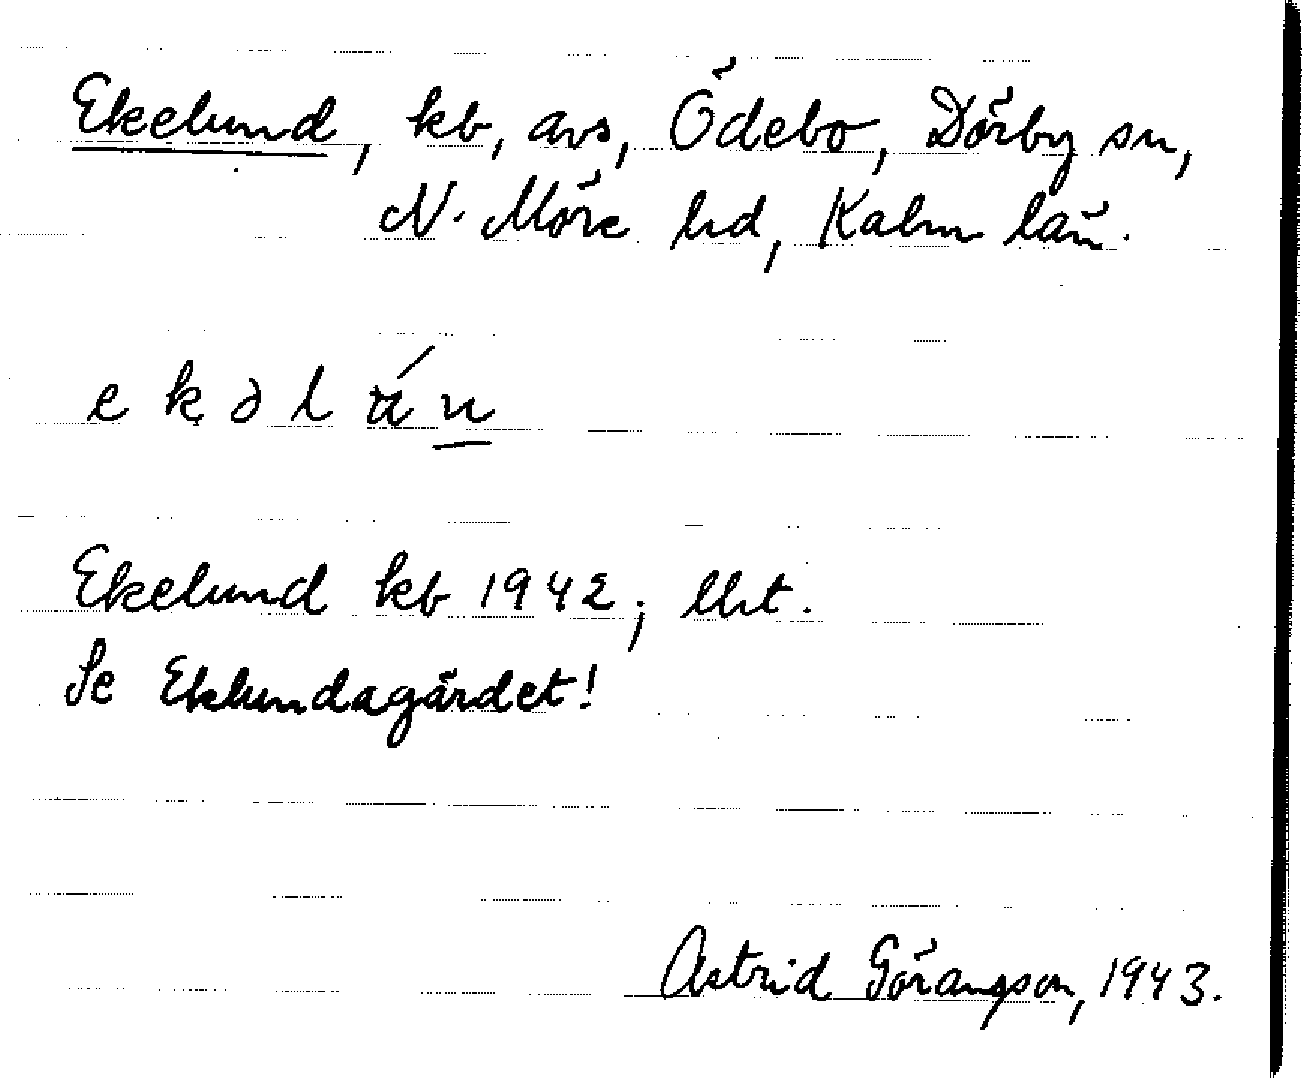 Ekelund, kb, avs, Ödebo, Dörby sn,
N. Möre hd, Kalm län.
Ekelund kb 1942; lht.
Se Eklundagärdet!
Astrid Göransson, 1943.